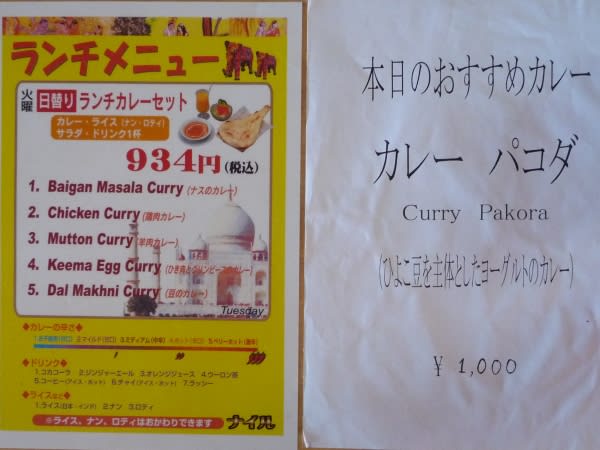 ランチメニュー
火曜
日替り ランチカレーセット
カレー・ライス(ナン・ロティ)
サラダ・ドリンク1杯
934円(税込)
1. Baigan Masala Curry (ナスのカレー)
2. Chicken Curry (鶏肉カレー)
3. Mutton Curry (羊肉カレー)
4. Keema Egg Curry (ひき肉とグリンピースのカレー)
5. Dal Makhni Curry (豆のカレー)
Tuesday
◆カレーの辛さ◆
2.マイルド(甘口) 3.ミディアム(中辛) 4.ホット(辛口) 5.ベリーホット(激辛)
◆ドリンク◆
1.コカコーラ 2.ジンジャーエール 3.オレンジジュース 4.ウーロン茶
5.コーヒー(アイス・ホット) 6.チャイ(アイス・ホット) 7.ラッシー
◆ライスなど◆
1.ライス(日本・インド) 2.ナン 3.ロティ
※ライス、ナン、ロティはおかわりできます
ナイル
本日のおすすめカレー
カレー パコダ
Curry Pakora
(ひよこ豆を主体としたヨーグルトのカレー)
¥ 1,000